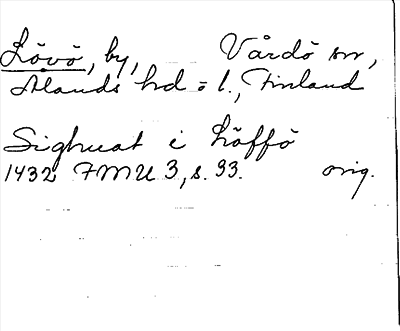 Lövö, by, Vårdö sn,
Ålands hd o l., Finland
Sighuat i Löffö
1432 FMU 3, s. 93. orig.